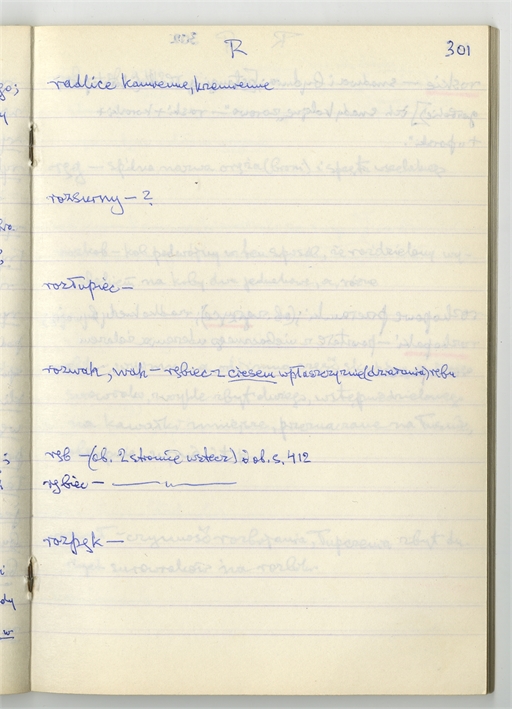 R 301
radlice kamienne, krzemienne
rozsurny – ?
rozłupiec –
rozwah, wah – rębiec z ciosem w płaszczyźnie (działania) rębu
rąb – (ob. 2 stronie wstecz) i ob. s. 412
rębiec – —— " ——
rozpęk –